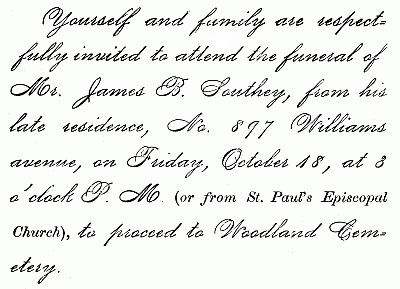 Yourself and family are respect=
fully invited to attend the funeral of
Mr. James B. Southey, from his
late residence, No. 897 Williams
avenue, on Friday, October 18, at 3
o'clock P. M. (or from St. Paul's Episcopal
Church), to proceed to Woodland Cem=
etery.